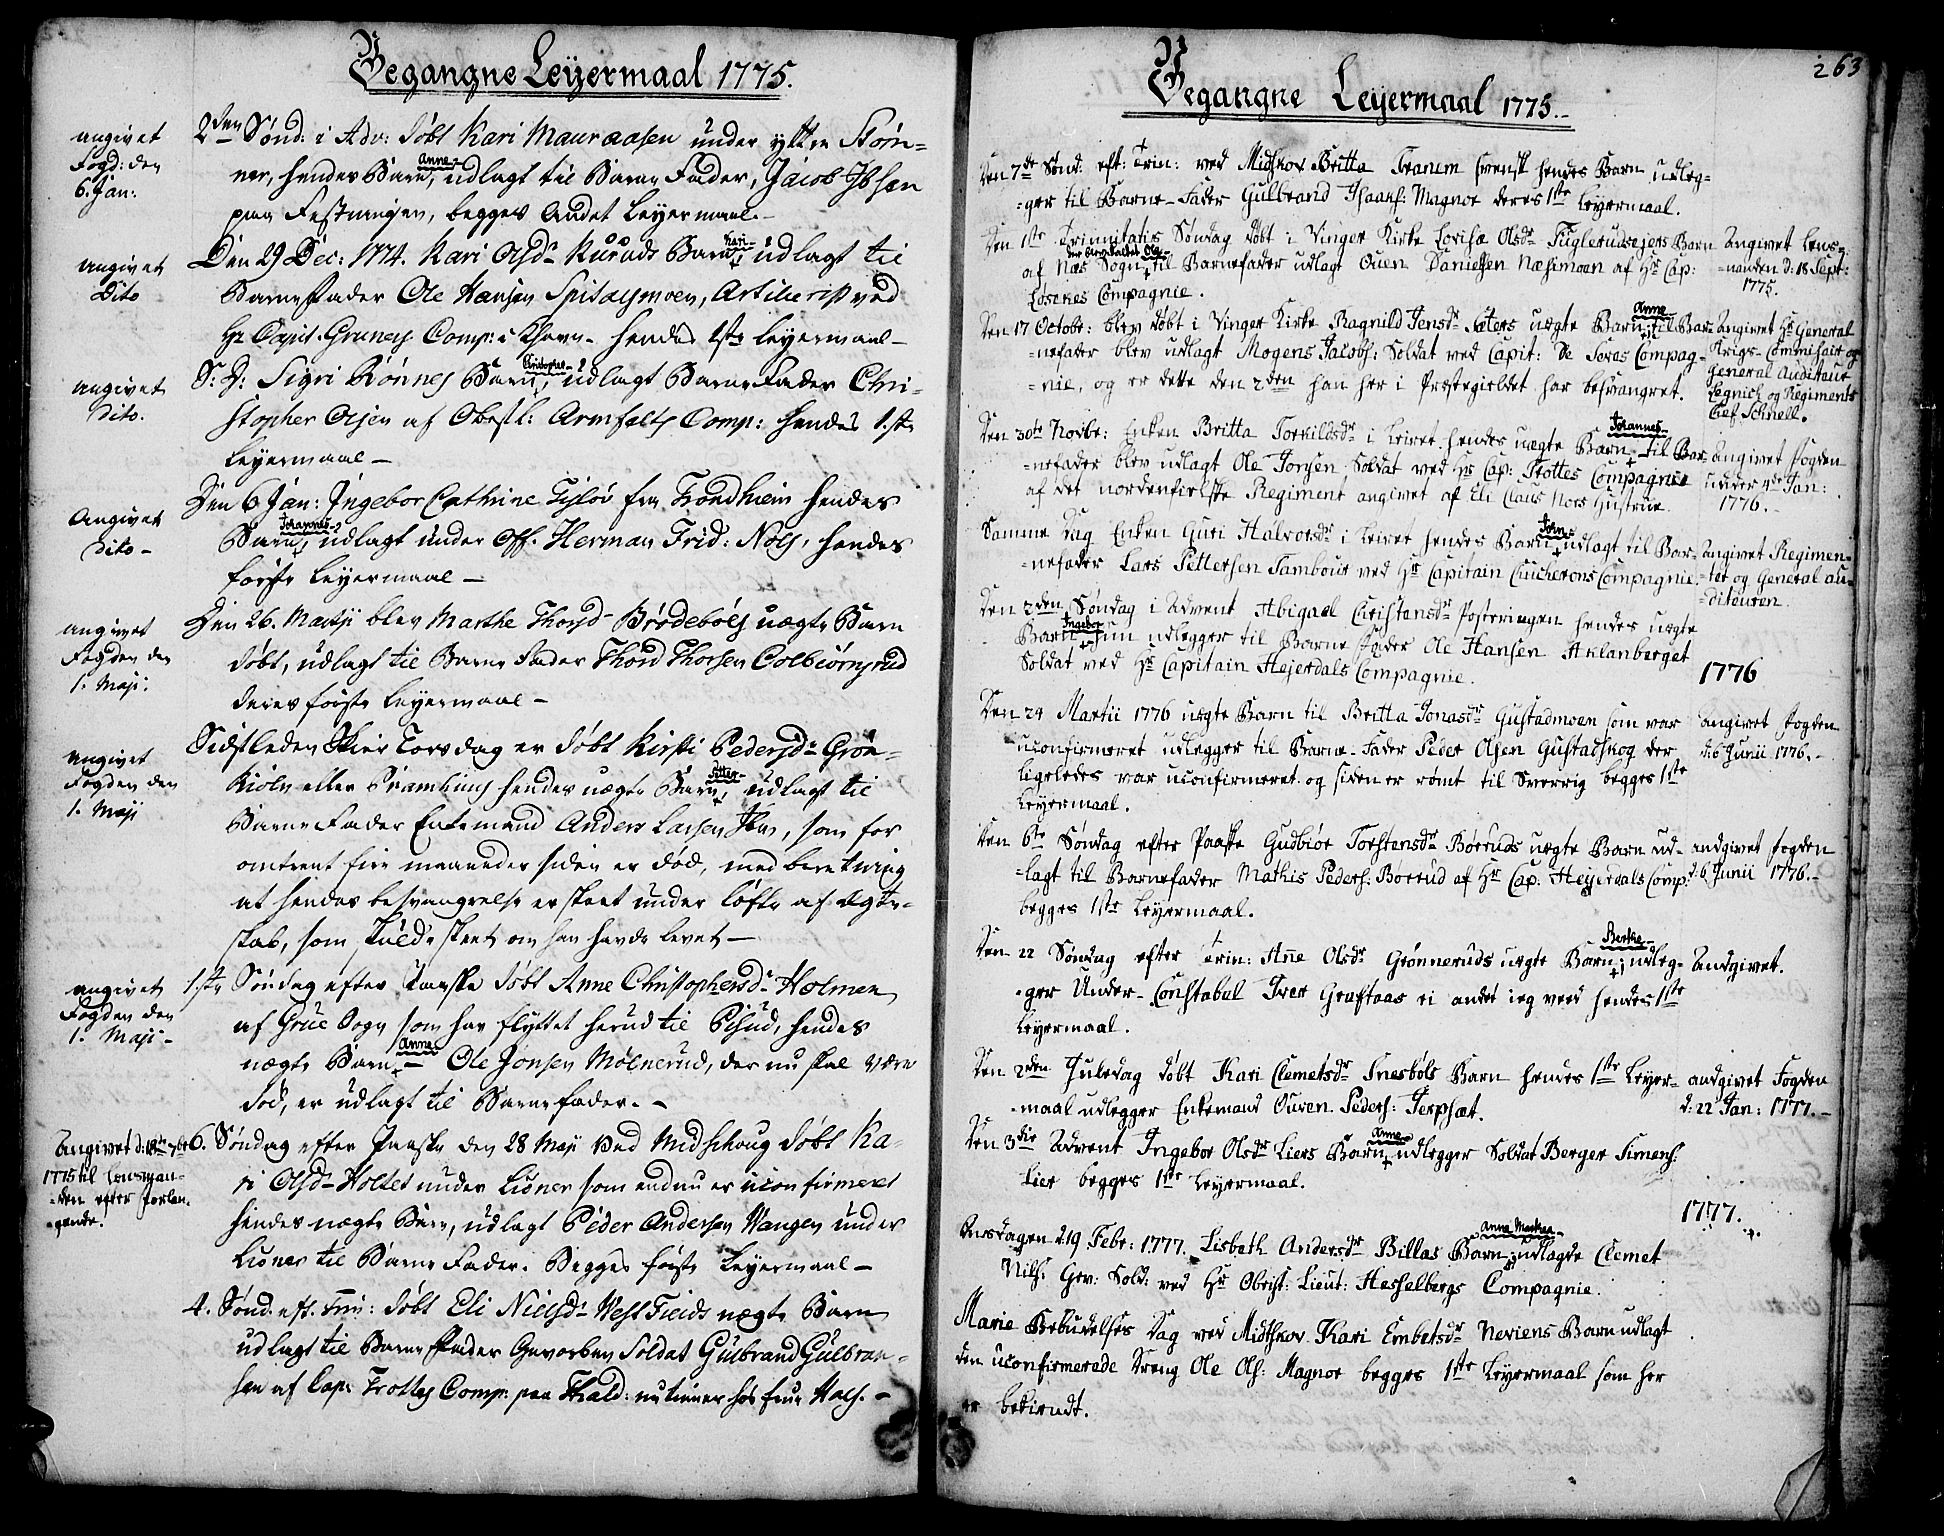 Begangne Leÿermaal 1775.
angivet
Fogd: den
6. Jan:
2den Sønd: i Adv: døbt Kari Mauraasen under yttre Støm-
ner, hendes Barn, Anne udlagt til Barne Fader, Jacob Ibsen
paa Festningen, begges Andet Leÿermaal.-
angivet
Dito
Den 29 Dec: 1774. Kari Olsdr Kuruds Barn, Kari udlagt til
Barne Fader Ole Hansen Spitalsmoen, Artillerist ved
Hr Capit. Gruners Comp: i Khavn- hendes 1ste Leyermaal-
angivet
dito.
S: D: Sigri Rønnes Barn, Christopher udlagt Barne Fader Chri-
stopher Olsen af Obestl: Armfelts Comp: hendes 1.ste
Leyermaal-
Angivet
dito-
Den 6 Jan: Ingebor Cathrine Tisløv fra Trondhiem hendes
Barn, Johannes udlagt under Off. Herman Frid: Nols, hendes
første Leyermaal-
angivet
Fogden den
1. Maji.
Den 26. Martji blev Marthe Thorsd- Brødebøls uægte Barn
døbt, udlagt til Barne Fader Thord Thorsen Colbiørnsrud
deres første Leyermaal-
angivet
Fogden den
1. Maji
Sidstleden Skier Torsdag er døbt Kirsti Pedersdr Grøn-
kiøln eller Pramhuus hendes uægte Barn, Petter udlagt til
Barne Fader Enkemand Anders Larsen, som for
omtrent fire maaneder siden er død, med beretning
at hendes besvangrelse er skeet under løfte af Ægte-
skab, som skulde skeet om han havde levet-
angivet
Fogden den
1. Maji-
1.ste Søndag efter Paaske døbt Anne Christophersdr Holmen
af Grue Sogn som har flyttet herud til Pisud, hendes
uægte Barn Anne- Ole Jonsen Mølnerud, der nu skal være
død, er udlagt til Barnefader.-
Angivet d: 18de 7br
1775 til Lensman-
den efter forlan-
gende.
6. Søndag efter Paaske den 28 Maji ved Midschoug døbt Ka-
ri Olsdr Holtet under Lisner som endnu er uconfirmeret
hendes uægte Barn, udlagt Peder Andersen Vangen under
Lisner til Barne Fader. Begges første Leyermaal-
4. Sønd. eft. Trin: døbt Eli Nielsdr Vestfieids uægte Barn
udlagt til Barne Fader Gevorben Soldat Gulbrand Gulbran-
sen af Cap: Trottes Comp: paa Fhald: nu tiener hos Frue Hals.-
263
Begangne Leyermaal 1775.-
Den 7de Sønd. eft: Trin: ved Midskov Britta Tranem svensk hendes Barn udleg-
=ger til Barne-Fader Gulbrand Isaachs: Magnor deres 1ste Leyermaal.
Den 1ste Trinnitatis Søndag døbt i Vinger Kirke Lovise Olsdr Fuglerudsejers Barn
af Næs Sogn, til Barnefader udlagt Ouen Danielsen Næsimoen af Hr Cap:
Løsekes Compagnie.
Angivet Lens-
=manden d: 18 Sept:
1775.
Den 17 Octobr: blev døbt i Vinger Kirke Ragnild Jensdr Sæters uægte Barn, Anne til Bar-
=nefader blev udlagt Mogens Jacobs: Soldat ved Capit: De Seves Compag-
=nie, og er dette den 2den han her i Præstegieldet har besvangret.
Angivet Hr General
Krigs-Commissair og
General Auditeur
Legnich og Regiments
Chef Schnell.
Den 30te Novbr: Enken Britta Torkildsdr i Leiret hendes uægte Barn Johannes til Bar-
=nefader blev udlagt Ole Jonsen Soldat ved Hr Cap: Trottes Compagnie
af det nordenfielske Regiment angivet af Eli Claus Nors Hustrue.
angivet Fogden
under 4de Jan:
1776.-
Samme Dag Enken Guri Halvorsdr i Leiret hendes Barn Jørn udlagt til Bar-
=nefader Lars Pettersen Tambour ved Hr Capitain Cuicherons Compagnie.
Angivet Regimen-
=ter og General Au-
=diteuren.
Den 2den Søndag i Advent Abigael Christensdr Posteringen hendes uægte
Barn Ingebor hun udlegger til Barne Fader Ole Hansen Aklanberget
Soldat ved Hr Capitain Hejerdals Compagnie.
1776
Den 24 Martii 1776 uægte Barn til Britta Jonasdr Gustadmoen som var
uconfirmeret udlegger til Barne-Fader Peder Olsen Gustadskog der
ligeledes var uconfirmeret og siden er rømt til Sverrig begges 1ste
Leyermaal.
angivet Fogden
d: 6 Junii 1776.-
Den 6te Søndag efter Paaske Gudbiør Torstensdr Børuds uægte Barn ud-
=lagt til Barnefader Mathis Peders: Børrud af Hr Cap: Heyerdals Comp:
begges 1ste Leyermaal.
andgivet Fogden
d: 6 Junii 1776.-
Den 22 Søndag efter Trin: Anne Olsdr Grønneruds uægte Barn, Berthe udleg-
=ger Under-Constabel Iver Graftaas ei andet ieg veed hendes 1ste
Leyermaal.
Andgivet.
Den 2den Juledag døbt Kari Clemetsdr Snesbøls Barn hendes 1ste Leyer-
=maal udlegger Enkemand Ouven Peders: Terphæt.
andgivet Fogden
d: 22 Jan: 1777.-
Den 3die Advent Ingebor Olsdr Liers Barn Anne udlegger Soldat Berger Simens:
Lier begges 1ste Leyermaal.
1777.
Onsdagen d 19 Febr: 1777. Lisbeth Andersdr Billas Barn, Anne Marthea udlagde Clemet
Nils: Gev: Sold. ved Hr Obrist: Lieut: Hesselbergs Compagnie.
Marie Bebudelses Dag ved Midtskov Kari Embretsdr Neriens Barn udlagt
den uconfirmerede Dreng Ole Ols: Magnor begges 1ste Leyermaal som her
er bekiendt.